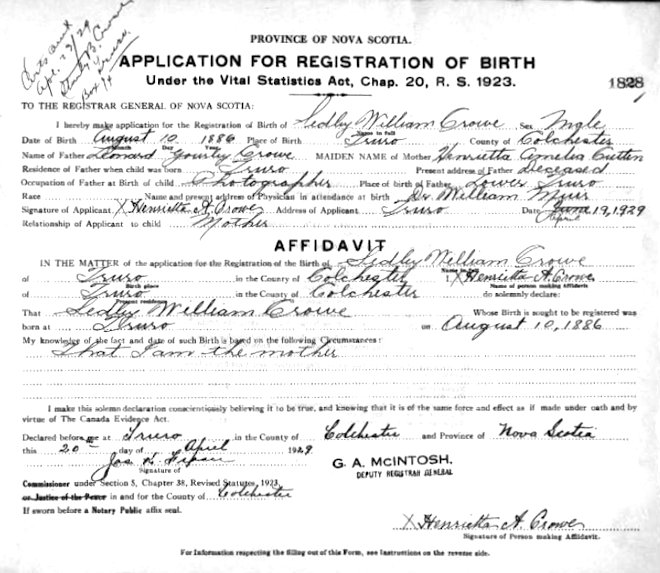 Certs sent
Apr. 23/29
Crowe
Truro.
Box
PROVINCE OF NOVA SCOTIA.
APPLICATION FOR REGISTRATION OF BIRTH
Under the Vital Statistics Act, Chap. 20, R. S. 1923.
TO THE REGISTRAR GENERAL OF NOVA SCOTIA:
I hereby make application for the Registration of Birth of Sedley William Crowe Sex Male
Name in full
Date of Birth August 10 1886 Place of Birth Truro County of Colchester
Month Day Year
Name of Father Leonard Gourley Crowe MAIDEN NAME of Mother Henrietta Amelia Cutten
Residence of Father when child was born Truro Present address of Father Deceased
Occupation of Father at Birth of child Photographer Place of birth of Father Lower Truro
Race Name and present address of Physician in attendance at birth Dr William Muir
Signature of Applicant X Henrietta A. Crowe Address of Applicant Truro Date June 19, 1929
April
Relationship of Applicant to child Mother
AFFIDAVIT
IN THE MATTER of the application for the Registration of the Birth of Sedley William Crowe
Name in full
of Truro in the County of Colchester I, X Henrietta A. Crowe
Birth place Name of person making Affidavit
of Truro in the County of Colchester do solemnly declare:
Present residence
That Sedley William Crowe Whose Birth is sought to be registered was
born at Truro on August 10, 1886
My knowledge of the fact and date of such Birth is based on the following Circumstances:
That I am the mother
I make this solemn declaration conscientiously believing it to be true, and knowing that it is of the same force and effect as if made under oath and by
virtue of The Canada Evidence Act.
Declared before me at Truro in the County of Colchester and Province of Nova Scotia
this 20 day of April 1929
Jas
Signature of
G. A. McINTOSH.
DEPUTY REGISTRAR GENERAL
Commissioner under Section 5, Chapter 38, Revised Statutes, 1923,
or Justice of the Peace in and for the County of Colchester
If sworn before a Notary Public affix seal.
X Henrietta A. Crowe
Signature of Person making Affidavit.
For Information respecting the filling out of this Form, see Instructions on the reverse side.